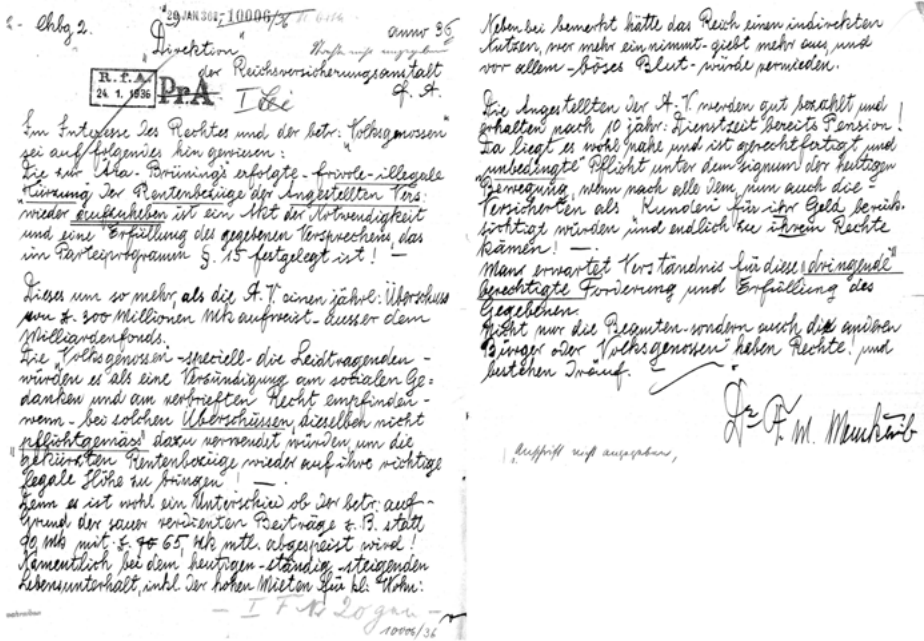 Chbg 2.
29 JAN 36 10006/36
anno 36
"Direktion"
der Reichsversicherungsanstalt
f. A.
R.f.A.
24. 1. 1936
Pr.A
Im Interesse des Rechtes und der betr: "Volksgenossen"
sei auf folgendes hingewiesen:
Die zur Ära-Brünings erfolgte-frivole-illegale
Kürzung der Rentenbezüge der Angestellten Vers:
wieder aufzuheben ist ein Akt der Notwendigkeit
und eine Erfüllung des gegebenen Versprechens, das
im Parteiprogramm §. 15 festgelegt ist! —
Dieses um so mehr, als die A.V. einen jährl: Überschuss
von z. 300 Millionen Mk aufweist-ausser dem
Milliardenfonds.
Die "Volksgenossen-speciell-die Leidtragenden-
würden es als eine Versündigung am socialen Ge=
danken und am verbrieften Recht empfinden-
wenn-bei solchen Überschüssen, dieselben nicht
"pflichtgemäss" dazu verwendet würden, um die
gekürzten Rentenbezüge wieder auf ihre richtige
legale Höhe zu bringen! —
Denn es ist wohl ein Unterschied ob der betr: auf-
Grund der sauer verdienten Beiträge z. B. statt
90 Mk mit z. 65, Mk mtl. abgespeist wird!
Namentlich bei dem heutigen-ständig-steigenden
Lebensunterhalt, inkl. der hohen Mieten für kl: Wohn:
10006/36
Nebenbei bemerkt hätte das Reich einen indirekten
Nutzen, wer mehr einnimmt-giebt mehr aus, und
vor allem-böses Blut-würde vermieden.
Die Angestellten der A.V. werden gut bezahlt und
erhalten nach 10 jähr: Dienstzeit bereits Pension!
Da liegt es wohl nahe und ist gerechtfertigt und
"unbedingte" Pflicht unter dem signum der heutigen
Bewegung, wenn nach alle dem, nun auch die-
Versicherten als "Kunden für ihr Geld berück-
sichtigt würden "und endlich zu ihrem Rechte
kämen! —
Mann erwartet Verständnis für diese "dringende"
berechtigte Forderung und Erfüllung des
Gegebenen.
Nicht nur die Beamten-sondern auch die anderen
Bürger oder "Volksgenossen" haben Rechte! und
bestehen drauf.
Dr F. M.
Anschrift nicht angegeben,